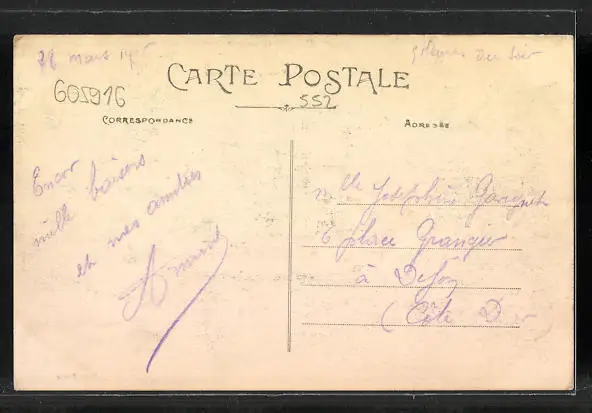 28 mars
9 heures du soir
CARTE POSTALE
605916
552
CORRESPONDANCE
ADRESSE
Encor
mille baisers
et mes amitiés
Mlle Joséphine
6 place Grangier
à Dijon
(Côte D'or